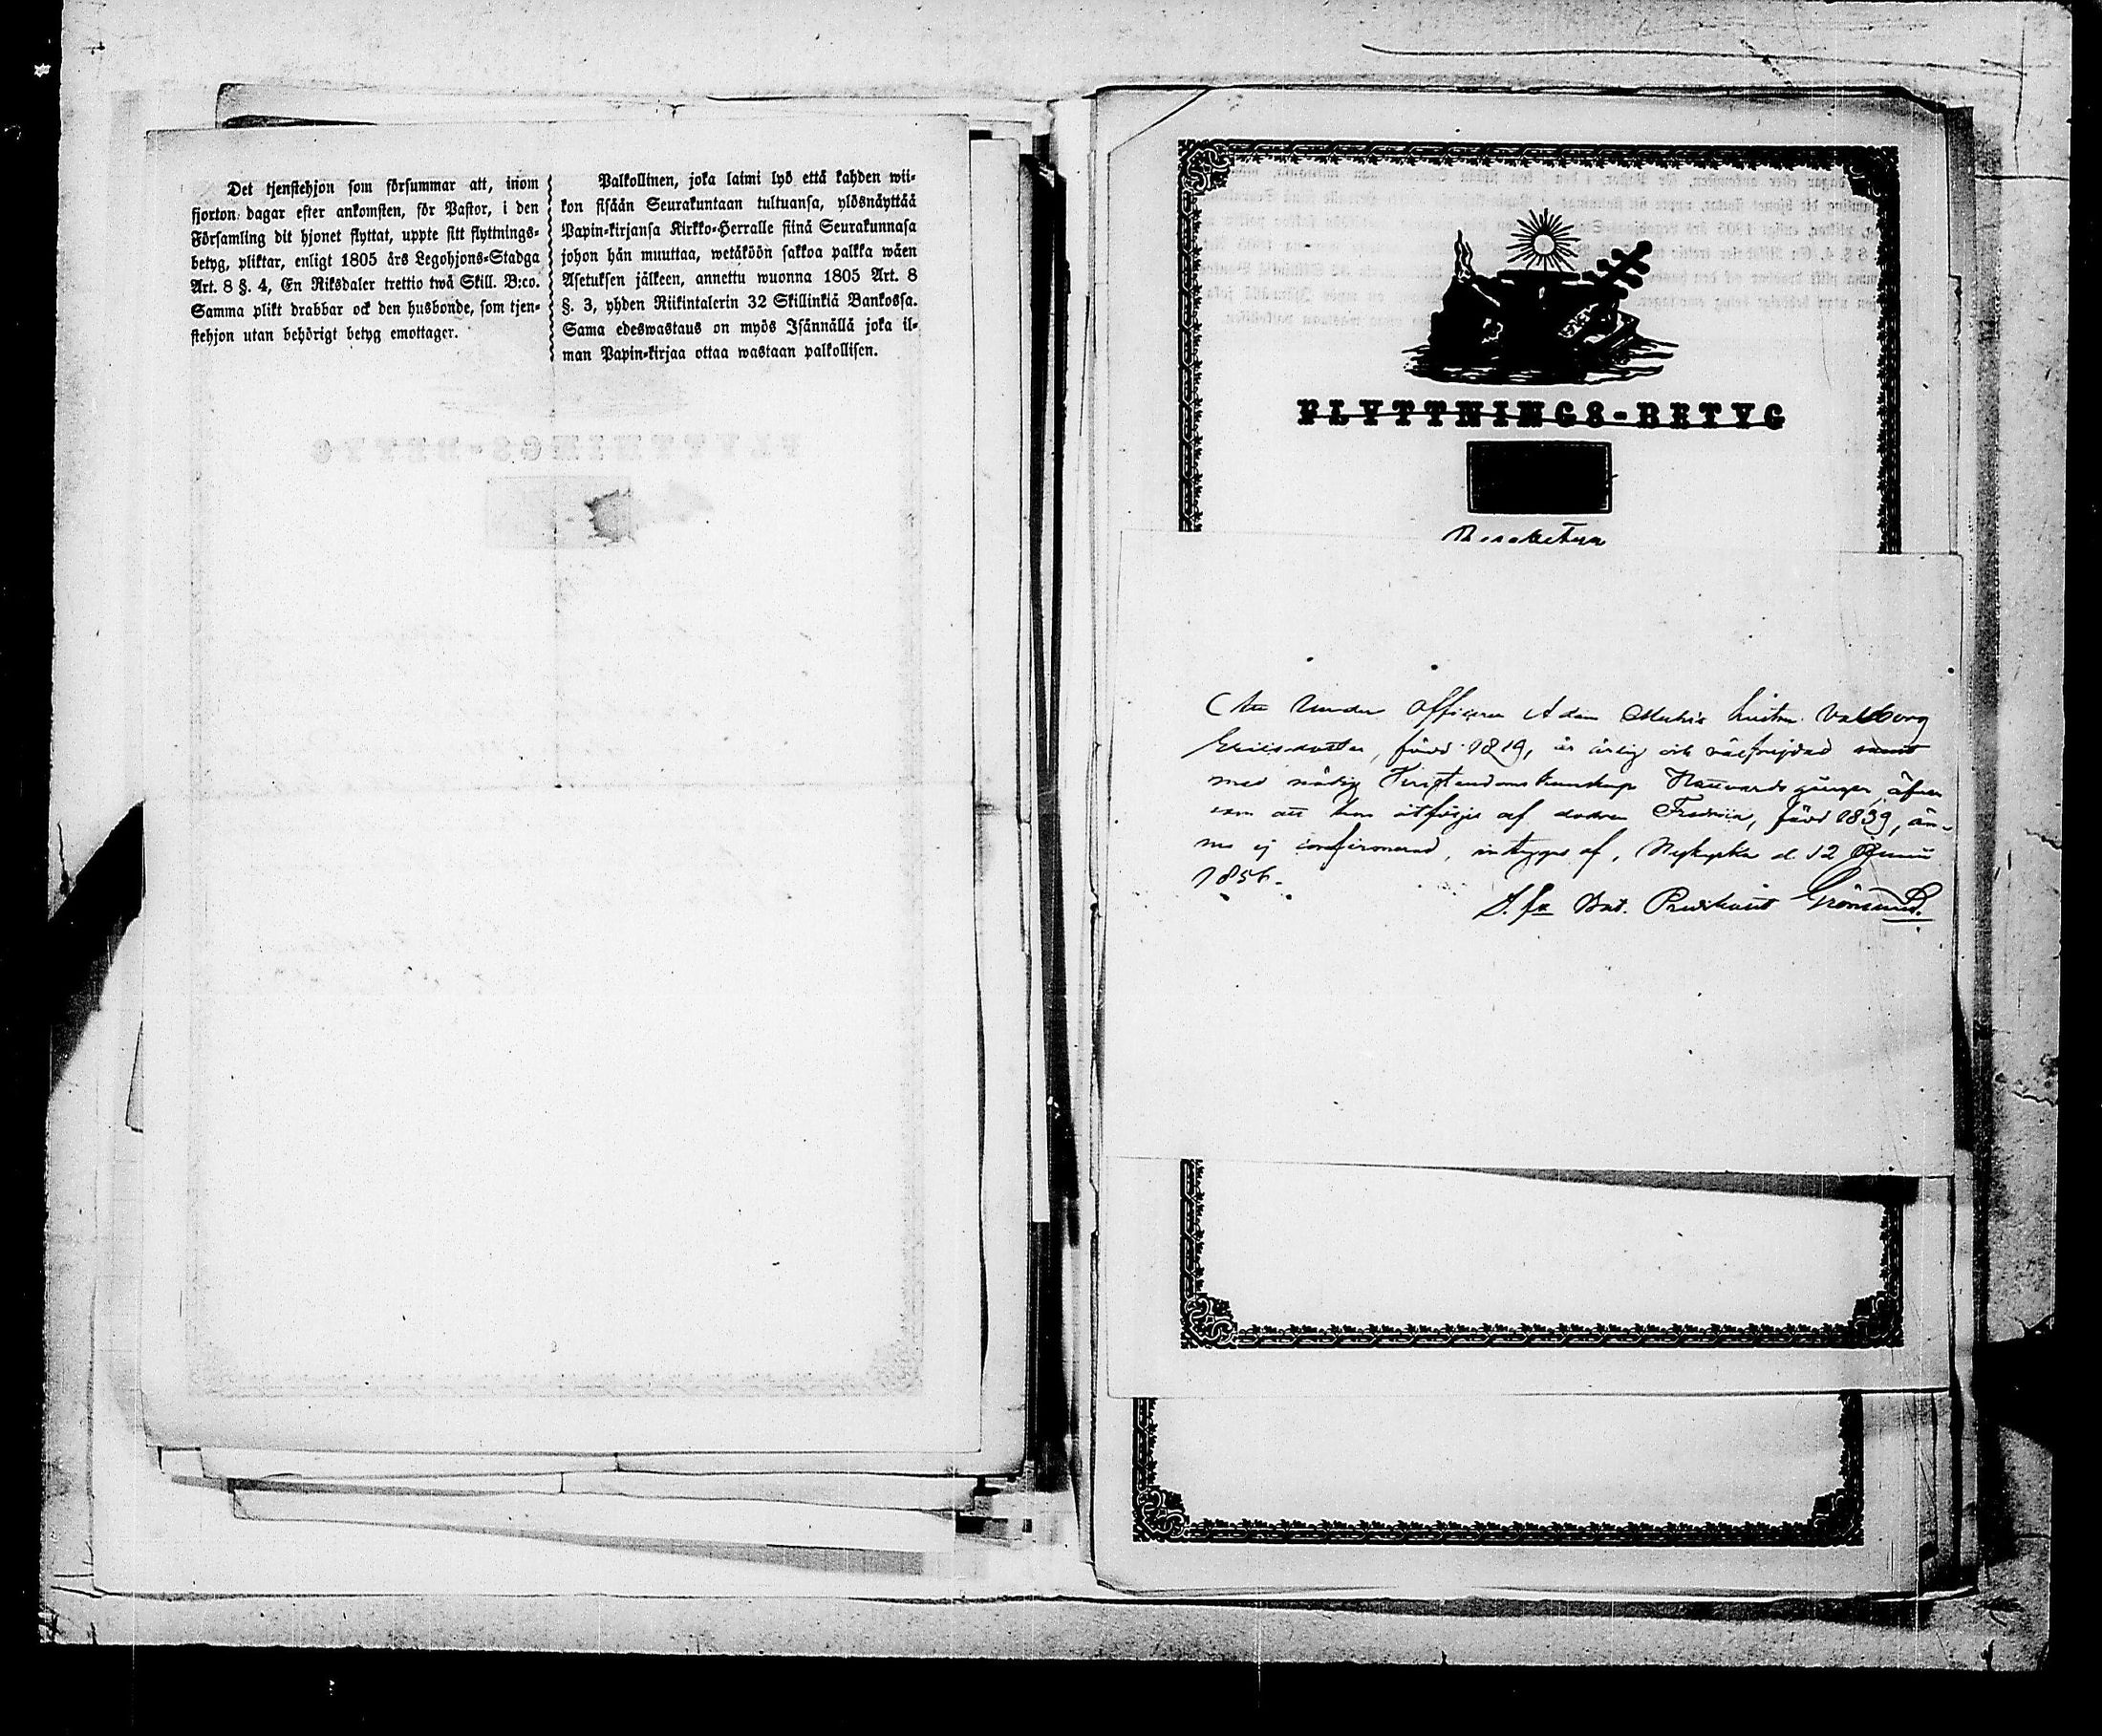 Det tjenstehjon som försummar att, inom
fjorton dagar efter ankomsten, för Pastor, i den
Församling dit hjonet flyttat, uppte sitt flyttnings-
betyg, pliktar, enligt 1805 års Legohjons-Stadga
Art. 8 §. 4, En Riksdaler trettio twå Skill. B:co.
Samma plikt drabbar ock den husbonde, som tjen-
stehjon utan behörigt betyg emottager.
Palkollinen, joka laimi lyö että kahden wii-
kon sisään Seurakuntaan tultuansa, ylösnäyttää
Papin-kirjansa Kirkko-Herralle siinä Seurakunnasa
johon hän muuttaa, wetäköön sakkoa palkka wäen
Asetuksen jälkeen, annettu wuonna 1805 Art. 8
§. 3, yhden Riikintalerin 32 Skillinkiä Bankossa.
Sama edeswastaus on myös Isännällä joka il-
man Papin-kirjaa ottaa wastaan palkollisen.
FLYTTNINGS-BETYG
Att Under Officeren Adam hustru Valborg
Ericsdotter, född 1819, är ärlig och välfrejdad samt
med nödig Christendoms kunskap Nattvardsgången, äfven
som att hon åtföljes af dottren Fredrica, född 1839, än-
nu ej confirmerad, intygas af, Nykyrka d. 12 Junii
1856.
Bat. Predikant Grönlund.